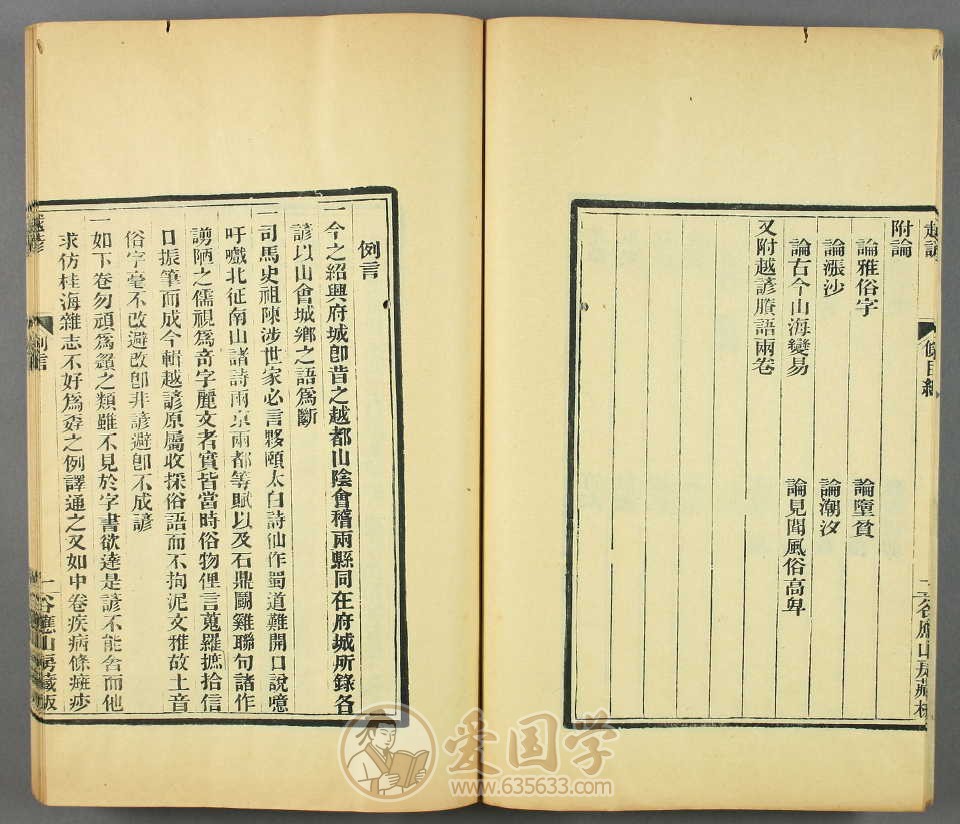 附論
論雅俗字 論墮貧
論漲沙 論潮汐
論古今山海變易 論見聞風俗高卑
又附越諺賸語兩卷
例言
一今之紹興府城卽昔之越都山陰會稽兩縣同在府城所錄各
諺以山會城鄉之語爲斷
一司馬史祖陳涉世家必言夥頤太白詩仙作蜀道難開口說噫
吁嚱北征南山諸詩兩京兩都等賦以及石鼎鬭雞聯句諸作
謭陋之儒視爲奇字麗文者實皆當時俗物俚言蒐羅摭拾信
口振筆而成今輯越諺原屬收採俗語而不拘泥文雅故土音
俗字毫不改避改卽非諺避卽不成諺
一如下卷勿頑爲籟之類雖不見於字書欲達是諺不能舍而他
求仿桂海雜志不好爲孬之例譯通之又如中卷疾病條
越諺
例言
一谷應山房藏版
爱国学
www.635633.com